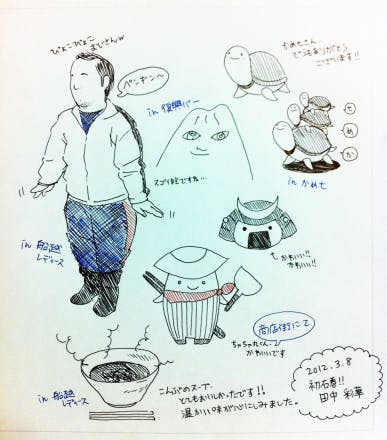 ぴょこぴょこ
まびさんw
ペンギン〜
in 復興バー
スゴイ絵ですね…
かめ七さん、
どうもありがとう
ございます!!
ち
め
か
in かめ七
in 船越
レディース
かわいい!!
かわいい!!
ちゃちゃくん、
かわいいです
商店街にて
in 船越
レディース
こんぶのスープ、
とてもおいしかったです!!
温かい味が心にしみました。
2012.3.8
初石巻!!
田中 彩華